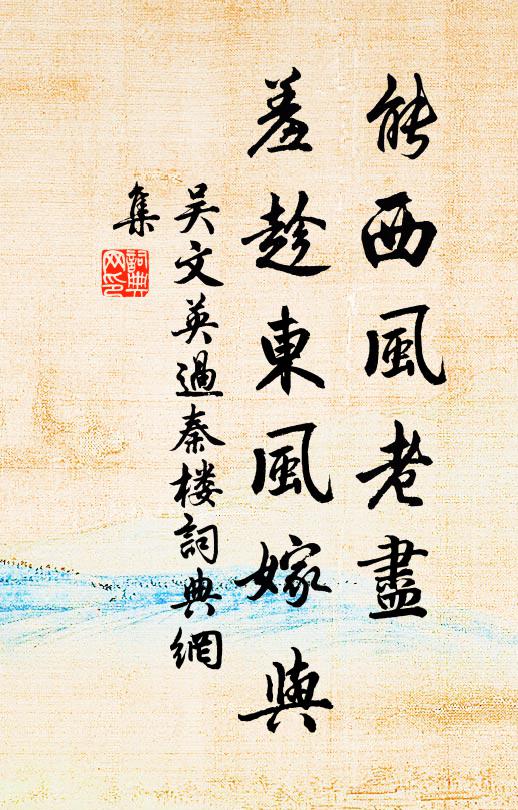 能西風老盡
羞趁東風嫁與
吳文英過秦楼詞典網
集
詞典网印